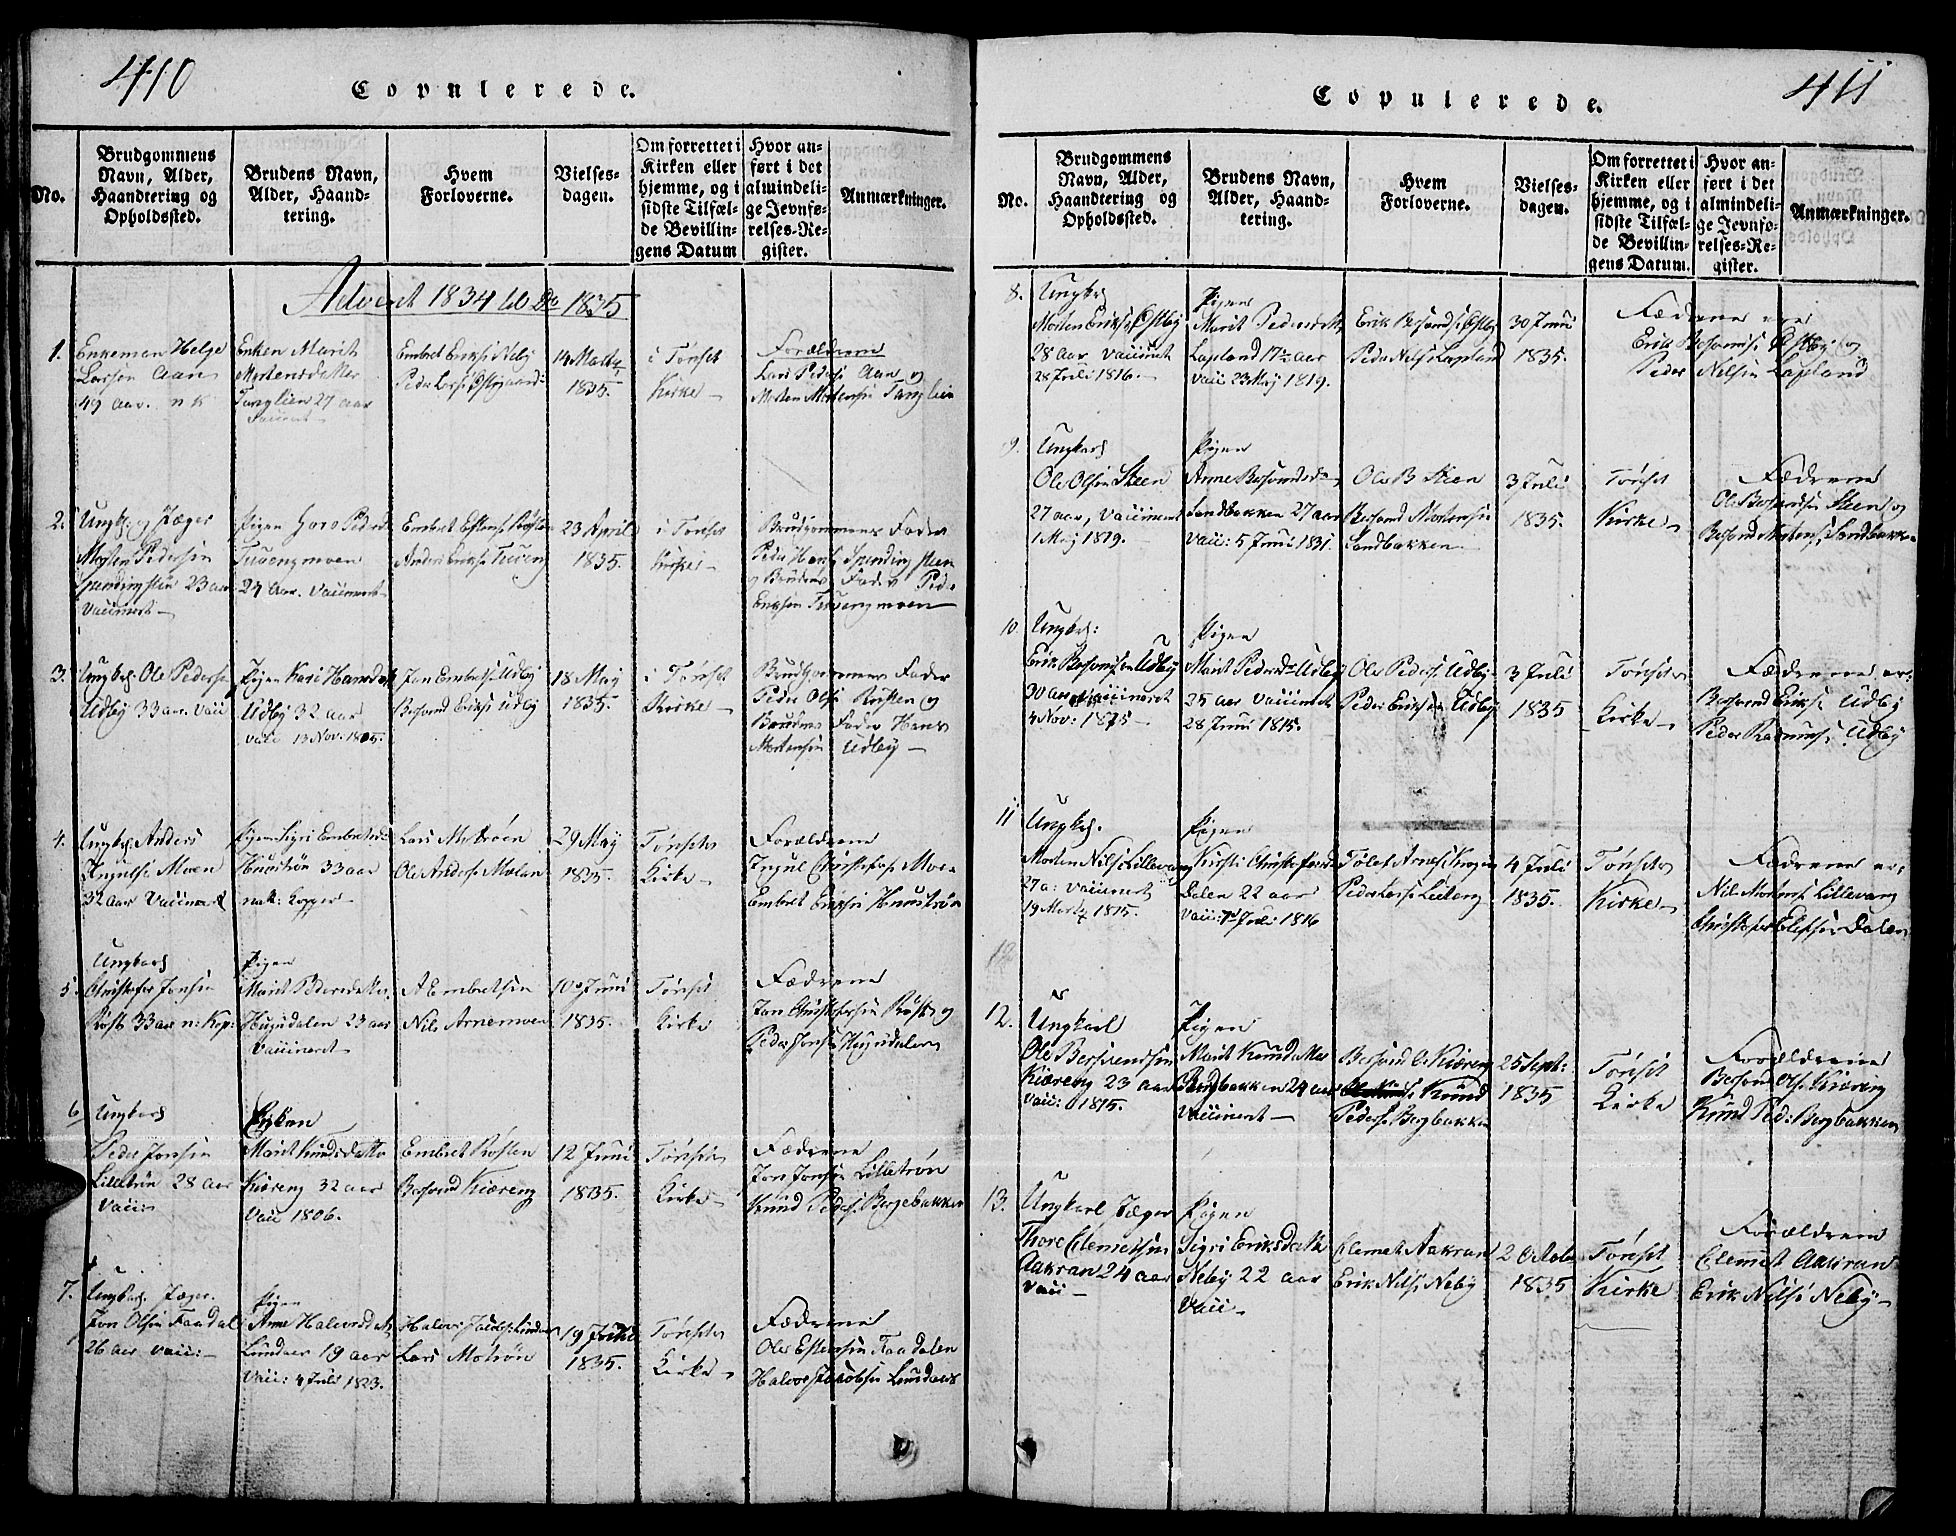 410
Copulerede.
No.
Brudgommens
Navn, Alder,
Haandtering og
Opholdssted.
Brudens Navn,
Alder, Haand-
tering.
Hvem
Forloverne.
Vielses-
dagen.
Om forrettet i
Kirken eller
hjemme, og i
sidste Tilfæl-
de Bevillin-
gens Datum
Hvor an-
ført i det
almindeli-
ge Jevnfø-
relses-Re-
gister.
Anmærkninger.
Advent 1834 til Do 1835
1.
Enkeman Helge
Larsen Aaen
49 aar. n k
Enken Marit
Mortensdatter
Tanglien 27 aar
Vaccineret
Embret Eriks: Neby
Peder Lars: Østgaard
14 Martz
1835.
i Tønset
Kirke
Forældrene
Lars Peders: Aaen og
Morten Mortensen Tanglien
2.
Ungk: og Jæger
Morten Pedersen
23 aar
Vaccineret
Pigen Goro Peders
Tuvengmoen
24 Aar. Vaccineret
Embret Estens: Røsten
Anders Eriks: Tuveng
23 April
1835.
i Tønset
Kirke
Brudgommens Fader
Peder Hans:
og Brudens Fader Peder
Eriksen Tuvengmoen
3.
Ungk: Ole Peders:
Udby 33 aar. Vacc
Pigen Kari Hansdatt
Udby 32 aar
vacc 13 Nov. 1805.
Jon Embrets: Udby
Bersvend Eriks: Udby
18 May
1835.
i Tønset
Kirke
Brudgommens Fader
Peder Ols: Røsten og
Brudens Fader Hans
Mortensen Udby
4.
Ungk: Anders
Inguls: Moen
32 aar Vaccineret
Pigen Sigri Embretsd:
33 aar
nat: Kopper
Lars Motrøen
Ole Anders: Moelan
29 May
1835.
Tønset
Kirke
Forældrene
Ingul Christophers: Moe
Embret Eriksen
5.
Ungkarl
Christopher Jonsen
Røst 33 aar n: Kop:
Pigen
Marit Pedersdatter
Hugudalen 23 aar
Vaccineret
A Embretsen
Nils Arnemoen
10 Juni
1835.
Tønset
Kirke
Fædrene
Jon Christophersen Røst og
Peder Jonsen Hugudalen
6
Ungkarl
Peder Jonsen
Lilletrøn 28 aar
Vacc:
Pigen
Marit Knudsdatter
Kiøreng 32 aar
Vacc 1806.
Embret Røsten
Bersvend Kiøreng
12 Juni
1835.
Tønset
Kirke
Fædrene
Jon Jonsen Lilletrøn
Knud Peders: Bergebakken
7.
Ungkarl. Jæger.
Jon Olsen Faadal
26 aar vacc:
Pigen
Anne Halvorsdatt
Lunaas 19 aar
Vacc: 4 Juli 1823.
Halvor Jacobs:
Lars Motrøn
19 Juni
1835.
Tønset
Kirke
Fædrene
Ole Estensen Faadalen
Halvor Jacobsen
411
Copulerede.
No.
Brudgommens
Navn, Alder,
Haandtering og
Opholdssted.
Brudens Navn,
Alder, Haand-
tering.
Hvem
Forloverne.
Vielses-
dagen.
Om forrettet i
Kirken eller
hjemme, og i
sidste Tilfæl-
de Bevillin-
gens Datum.
Hvor an-
ført i det
almindeli-
ge Jevnfø-
relses-Re-
gister.
Anmærkninger.
8.
Ungk:
Morten Eriks: Østby
28 aar vaccineret
28 Juli 1816.
Pigen
Marit Pedersdatt
Lapland 17 1/2 aar
vacc 23 May 1819.
Erik Bersvends: Østby
Peder Nils: Lapland
30 Juni
1835.
Fædrene ere
Erik Bersvends: Østby og
Peder Nilsen Lapland
9.
Ungkarl
Ole Olsen Steen
27 aar, Vaccineret
1 May 1819.
Pigen
Anne Bersvendsd
Sandbakken 27 aar
Vacc: 5 Juni 1831.
Ole B Steen
Bersvend Mortensen
Sandbakken
3 Juli
1835.
Tønset
Kirke
Fædrene
Ole Bersvendsen Steen og
Bersvend Mortens: Sandbakken
10.
Ungk:
Erik Bersvendsen Udby
30 aar vaccineret
4 Nov: 1815
Pigen
Marit Pedersd: Udby
25 aar vaccineret
28 Juni 1815.
Ole Peders: Udby
Peder Eriksen Udby
3 Juli
1835
Tønset
Kirke
Fædrene er:
Bersvend Eriks: Udby
Peder Rasmus: Udby
11
Ungk.
Morten Nils: Lillevang
27 a: vaccineret
19 Martz 1815.
Pigen
Kirsti Christophersd
Dalen 22 aar
Vacc: Juli 1816
Tolef Arnes: Krogen
Peder Lars: Lieeng
4 Juli
1835.
Tønset
Kirke
Fædrene er:
Nils Mortens: Lillevang
Christopher Olefsen Dalen
12.
Ungkarl
Ole Bersvendsen
Kiøreng 23 aar
Vacc: 1815.
Pigen
Marit Knudsdatter
Bergbakken 24 aar
Vaccineret
Bersvend O: Kiøreng
Knud
Peders: Bergbakken
25 Sept:
1835
Tønset
Kirke
Forældrene
Bersvend Ols: Kiøreng
Knud Ped: Bergbakken
13.
Ungkarl Jæger
Thore Clemetsen
Aakran 24 aar
vacc
Pigen
Sigri Eriksdatt
Neby 22 aar
Vacc
Clemet Aakran
Erik Nils: Neby
2 Octob
1835
Tønset
Kirke
Forældrene
Clemet Aakran
Erik Nils: Neby